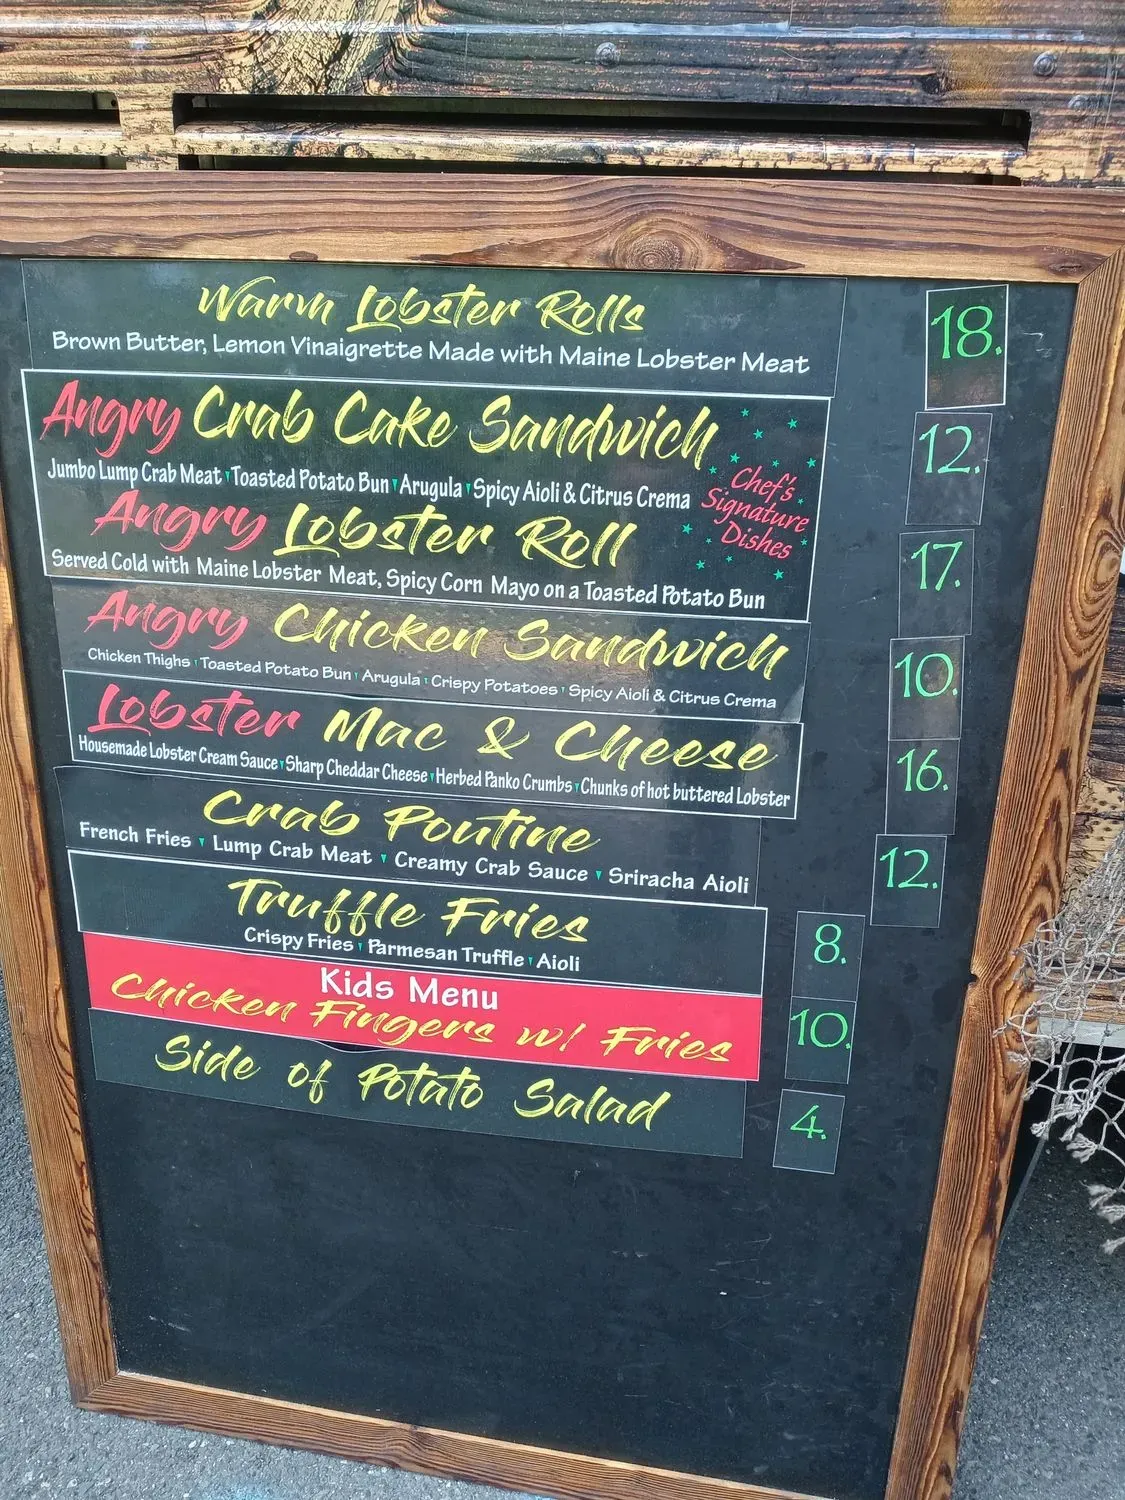 Warm Lobster Rolls 18.
Brown Butter, Lemon Vinaigrette Made with Maine Lobster Meat
Angry Crab Cake Sandwich 12.
Jumbo Lump Crab Meat ▾ Toasted Potato Bun ▾ Arugula ▾ Spicy Aioli & Citrus Crema
Chef's
Signature
Dishes
Angry Lobster Roll 17.
Served Cold with Maine Lobster Meat, Spicy Corn Mayo on a Toasted Potato Bun
Angry Chicken Sandwich 10.
Chicken Thighs ▾ Toasted Potato Bun ▾ Arugula ▾ Crispy Potatoes ▾ Spicy Aioli & Citrus Crema
Lobster Mac & Cheese 16.
Housemade Lobster Cream Sauce ▾ Sharp Cheddar Cheese ▾ Herbed Panko Crumbs ▾ Chunks of hot buttered Lobster
Crab Poutine 12.
French Fries ▾ Lump Crab Meat ▾ Creamy Crab Sauce ▾ Sriracha Aioli
Truffle Fries 8.
Crispy Fries ▾ Parmesan Truffle ▾ Aioli
Kids Menu
Chicken Fingers w/ Fries 10.
Side of Potato Salad 4.